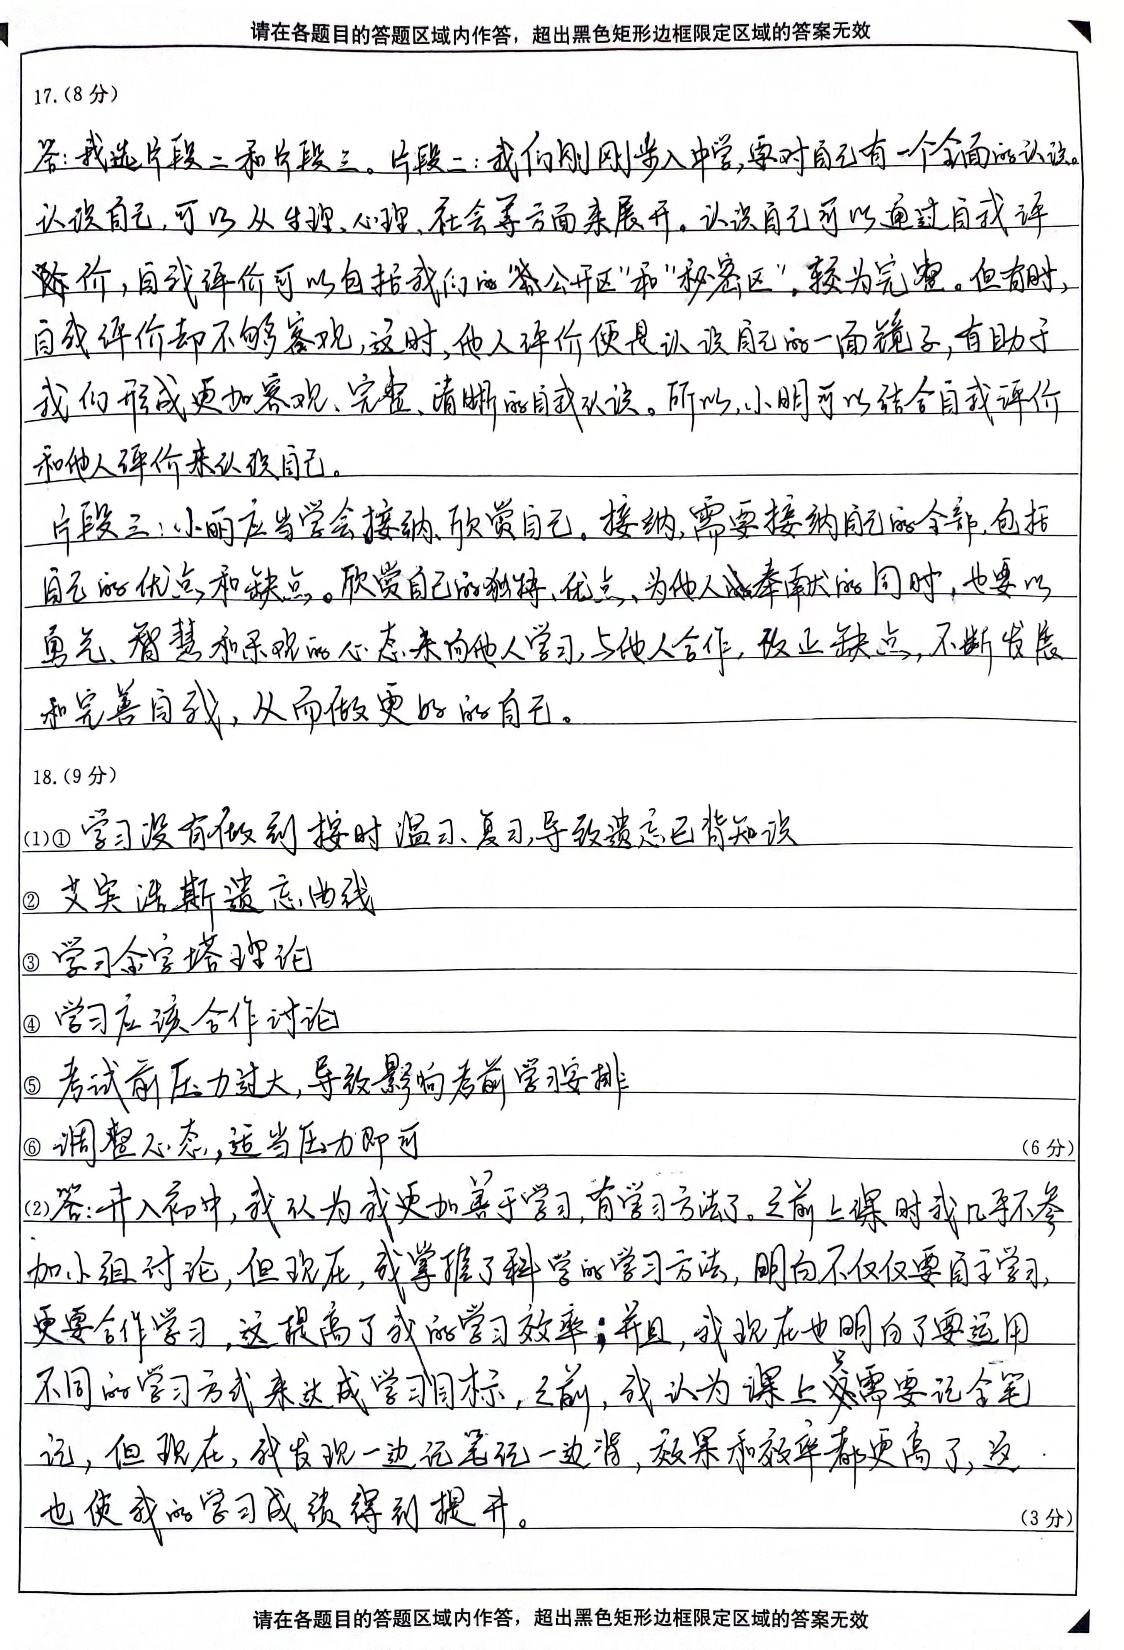 请在各题目的答题区域内作答，超出黑色矩形边框限定区域的答案无效
17.(8分)
答:我选片段二和片段三。片段二:我们刚刚步入中学,要对自己有一个全面的认识。
认识自己,可以从生理、心理、社会等方面来展开。认识自己可以通过自我评
价,自我评价可以包括我们的“公开区”和“秘密区”,较为完整。但有时,
自我评价却不够客观,这时,他人评价便是认识自己的一面镜子,有助于
我们形成更加客观、完整、清晰的自我认识。所以,小明可以结合自我评价
和他人评价来认识自己。
片段三:小丽应当学会接纳、欣赏自己。接纳,需要接纳自己的全部,包括
自己的优点和缺点。欣赏自己的独特、优点、为他人奉献的同时,也要以
勇气、智慧和乐观的心态来向他人学习,与他人合作,改正缺点,不断发展
和完善自我,从而做更好的自己。
18.(9分)
(1)①学习没有做到按时温习、复习,导致遗忘已背知识
②艾宾浩斯遗忘曲线
③学习金字塔理论
④学习应该合作讨论
⑤考试前压力过大,导致影响考前学习安排
⑥调整心态,适当压力即可 (6分)
(2)答:升入初中,我认为我更加善于学习,有学习方法了。之前上课时我几乎不参
加小组讨论,但现在,我掌握了科学的学习方法,明白不仅仅要自主学习,
更要合作学习,这提高了我的学习效率;并且,我现在也明白了要运用
不同的学习方式来达成学习目标,之前,我认为课上只需要记全笔
记,但现在,我发现一边记笔记一边背,效果和效率都更高了,这
也使我的学习成绩得到提升。 (3分)
请在各题目的答题区域内作答，超出黑色矩形边框限定区域的答案无效